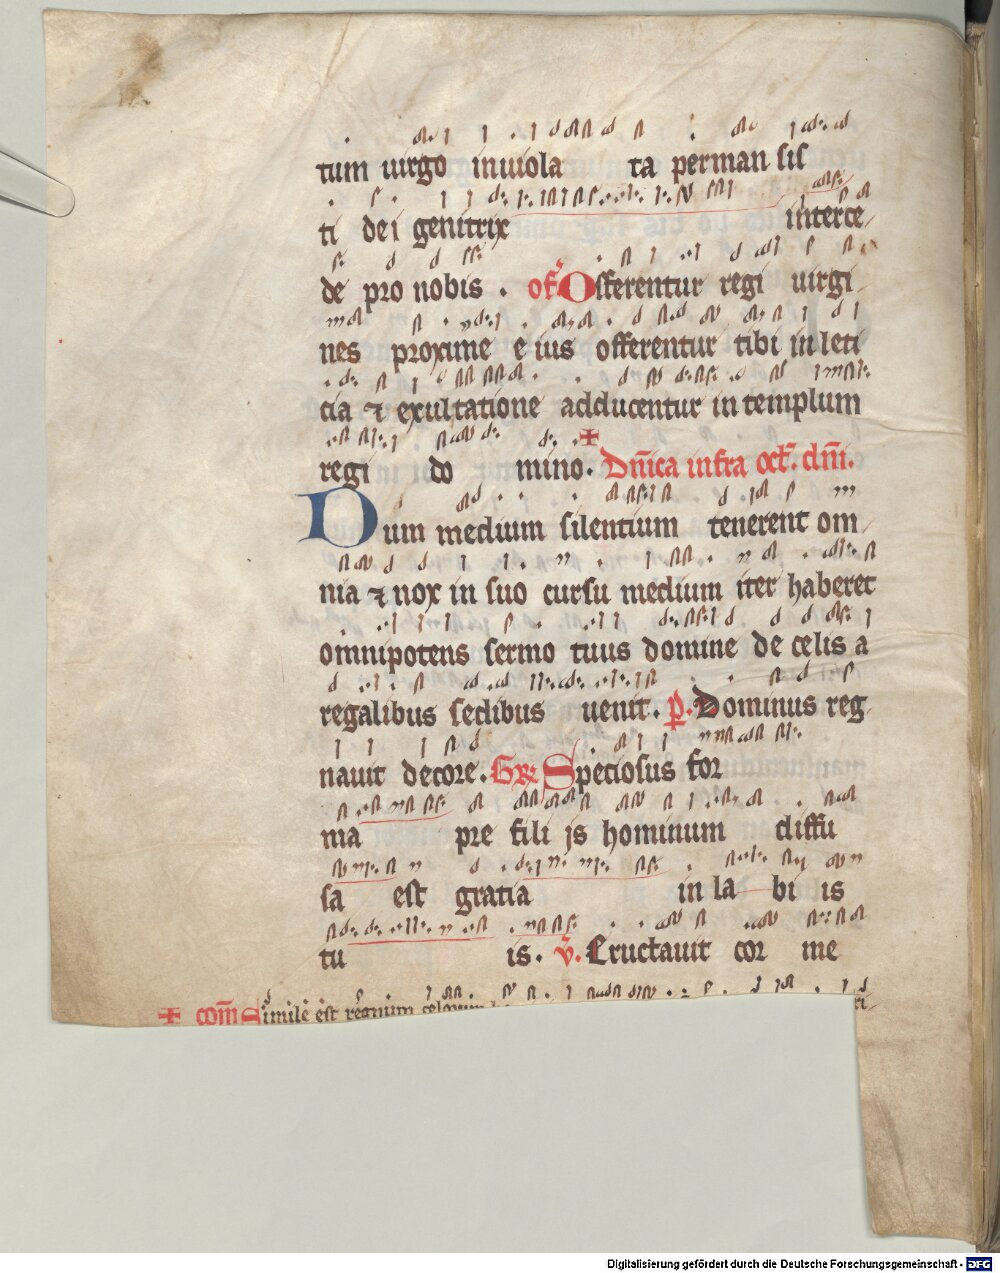 tum uirgo inuiola ta perman sis
ti dei genitrix interce
de pro nobis . of Offerentur regi uirgi
nes proxime e ius offerentur tibi in leti
cia ⁊ exultatione adducentur in templum
regi do mino. + Dn̄ica infra oct. dn̄i.
Dum medium silentium tenerent om
nia ⁊ nox in suo cursu medium iter haberet
omnipotens sermo tuus domine de celis a
regalibus sedibus uenit. p̄. Dominus reg
nauit decore. Gr Speciosus for
ma pre fili js hominum diffu
sa est gratia in la bi is
tu is. v. Eructauit cor me
+ com̄ Simile est regnum celorum
Digitalisierung gefördert durch die Deutsche Forschungsgemeinschaft - DFG